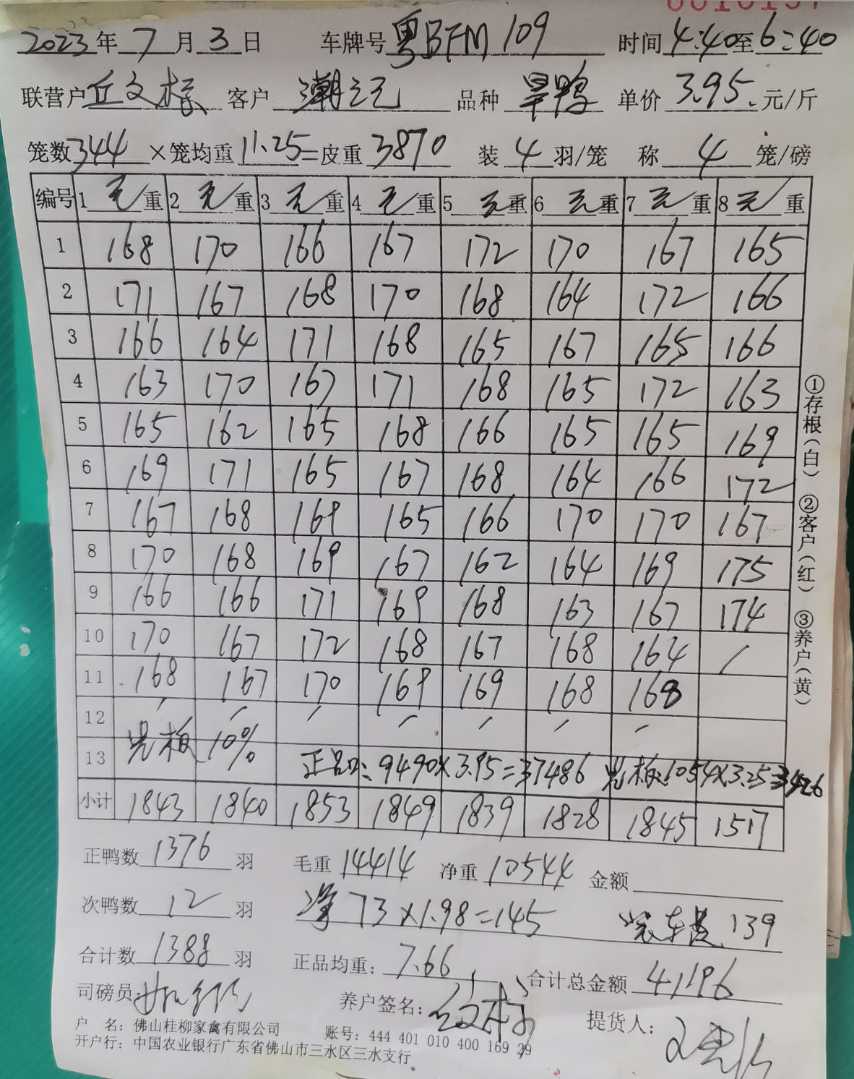 2023年7月3日 车牌号 粤BFM109 时间4:40至6:40
联营户 丘文标 客户 品种 旱鸭 单价3.95元/斤
笼数344×笼均重11.25=皮重3870 装4羽/笼 称4笼/磅
编号 1毛重 2毛重 3毛重 4毛重 5毛重 6毛重 7毛重 8毛重
1 168 170 166 167 172 170 167 165
2 171 167 168 170 168 164 172 166
3 166 164 171 168 165 167 165 166
4 163 170 167 171 168 165 172 163
5 165 162 165 168 166 165 165 169
6 169 171 165 167 168 164 166 172
7 167 168 169 165 166 170 170 167
8 170 168 169 167 162 164 169 175
9 166 166 171 169 168 163 167 174
10 170 167 172 168 167 168 164 /
11 168 167 170 169 169 168 168
12 / / / / / / /
13 10% 正品: 9490×3.95=37486 1054×3.25=3426
小计 1843 1840 1853 1849 1839 1828 1845 1517
正鸭数1376羽 毛重14414 净重10544 金额
次鸭数12羽 净73×1.98=145 装车费139
合计数1388羽 正品均重:7.66 合计总金额41196
司磅员 养户签名: 提货人:
户 名:佛山桂柳家禽有限公司 账号:444 401 010 400 169 39
开户行:中国农业银行广东省佛山市三水区三水支行
①存根(白) ②客户(红) ③养户(黄)